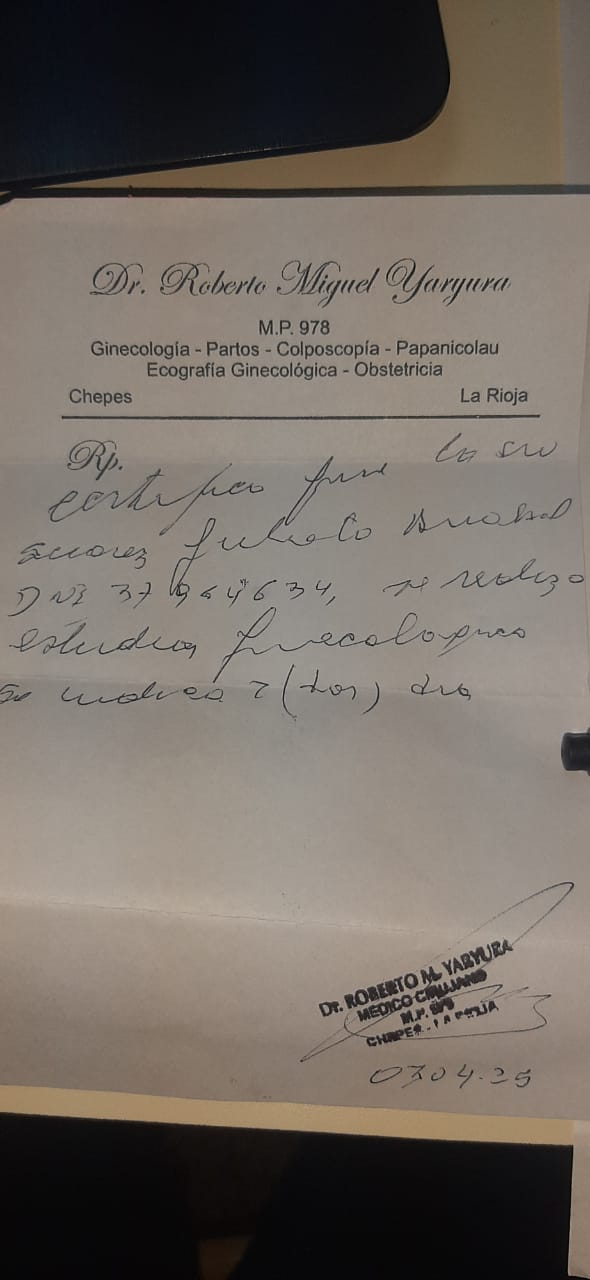 Dr. Roberto Miguel Yaryura
M.P. 978
Ginecología - Partos - Colposcopía - Papanicolau
Ecografía Ginecológica - Obstetricia
Chepes La Rioja
Rp.
certifico que la sra
Suarez Julieta
DNI 37 964634, se realizo
estudios ginecologico
se indica 2 (dos) dia
Dr. ROBERTO M. YARYURA
MEDICO CIRUJANO
M.P. 978
CHEPES - LA RIOJA
07 04.25